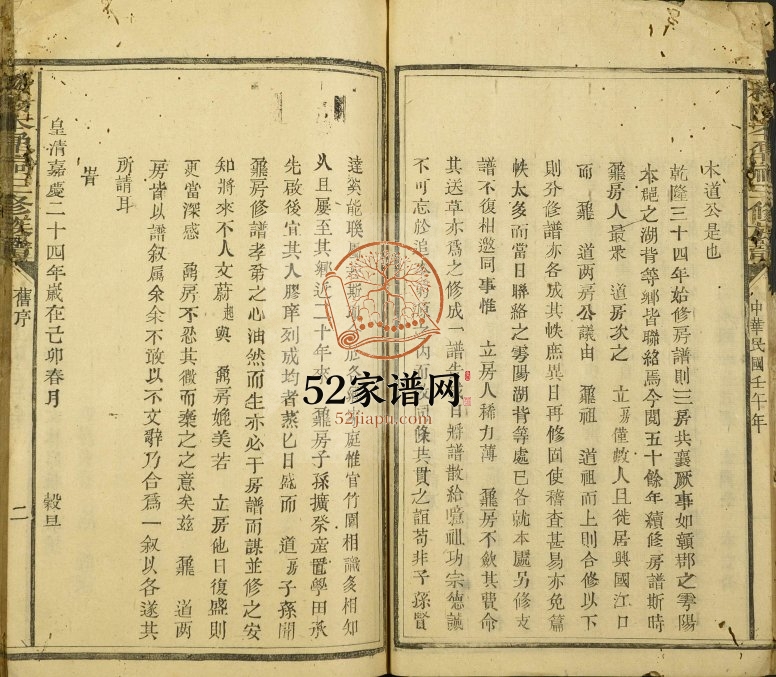 木道公是也
乾隆三十四年始修房譜則三房共襄厥事如贛郡之雩陽
本裡之湖背等鄉皆聯絡焉今閱五十餘年續修房譜斯時
鼐房人最衆 道房次之 立房僅數人且徙居興國江口
而 鼐 道两房公議由 鼐祖 道祖而上則合修以下
則分修譜亦各成其帙庶異日再修固使稽査甚易亦免篇
帙太多而當日聯絡之雩陽湖背等處已各就本處另修支
譜不復相邀同事惟 立房人稀力薄 鼐房不歛其費命
其送草亦爲之修成一譜 日辦譜散給 祖功宗德誠
不可忘於追 而 同條共貫之誼苟非子孫賢
中華民國壬午年
達奚能聯 各 庭惟官竹園相識多相知
久且屢至其鄉近二十年來 鼐房子孫擴祭產置學田承
先啟後宜其人膠庠列成均者蒸已日盛而 道房子孫聞
鼐房修譜孝弟之心油然而生亦必于房譜而謀並修之安
知將來不人文蔚起與 鼐房媲美若 立房他日復盛則
更當深感 鼐房不忍其微而棄之之意矣兹 鼐 道两
房皆以譜叙属余余不敢以不文辭乃合爲一叙以各遂其
所請耳
旹
皇清嘉慶二十四年歲在己卯春月 穀旦
舊序
二
52家谱网
52jiapu.com